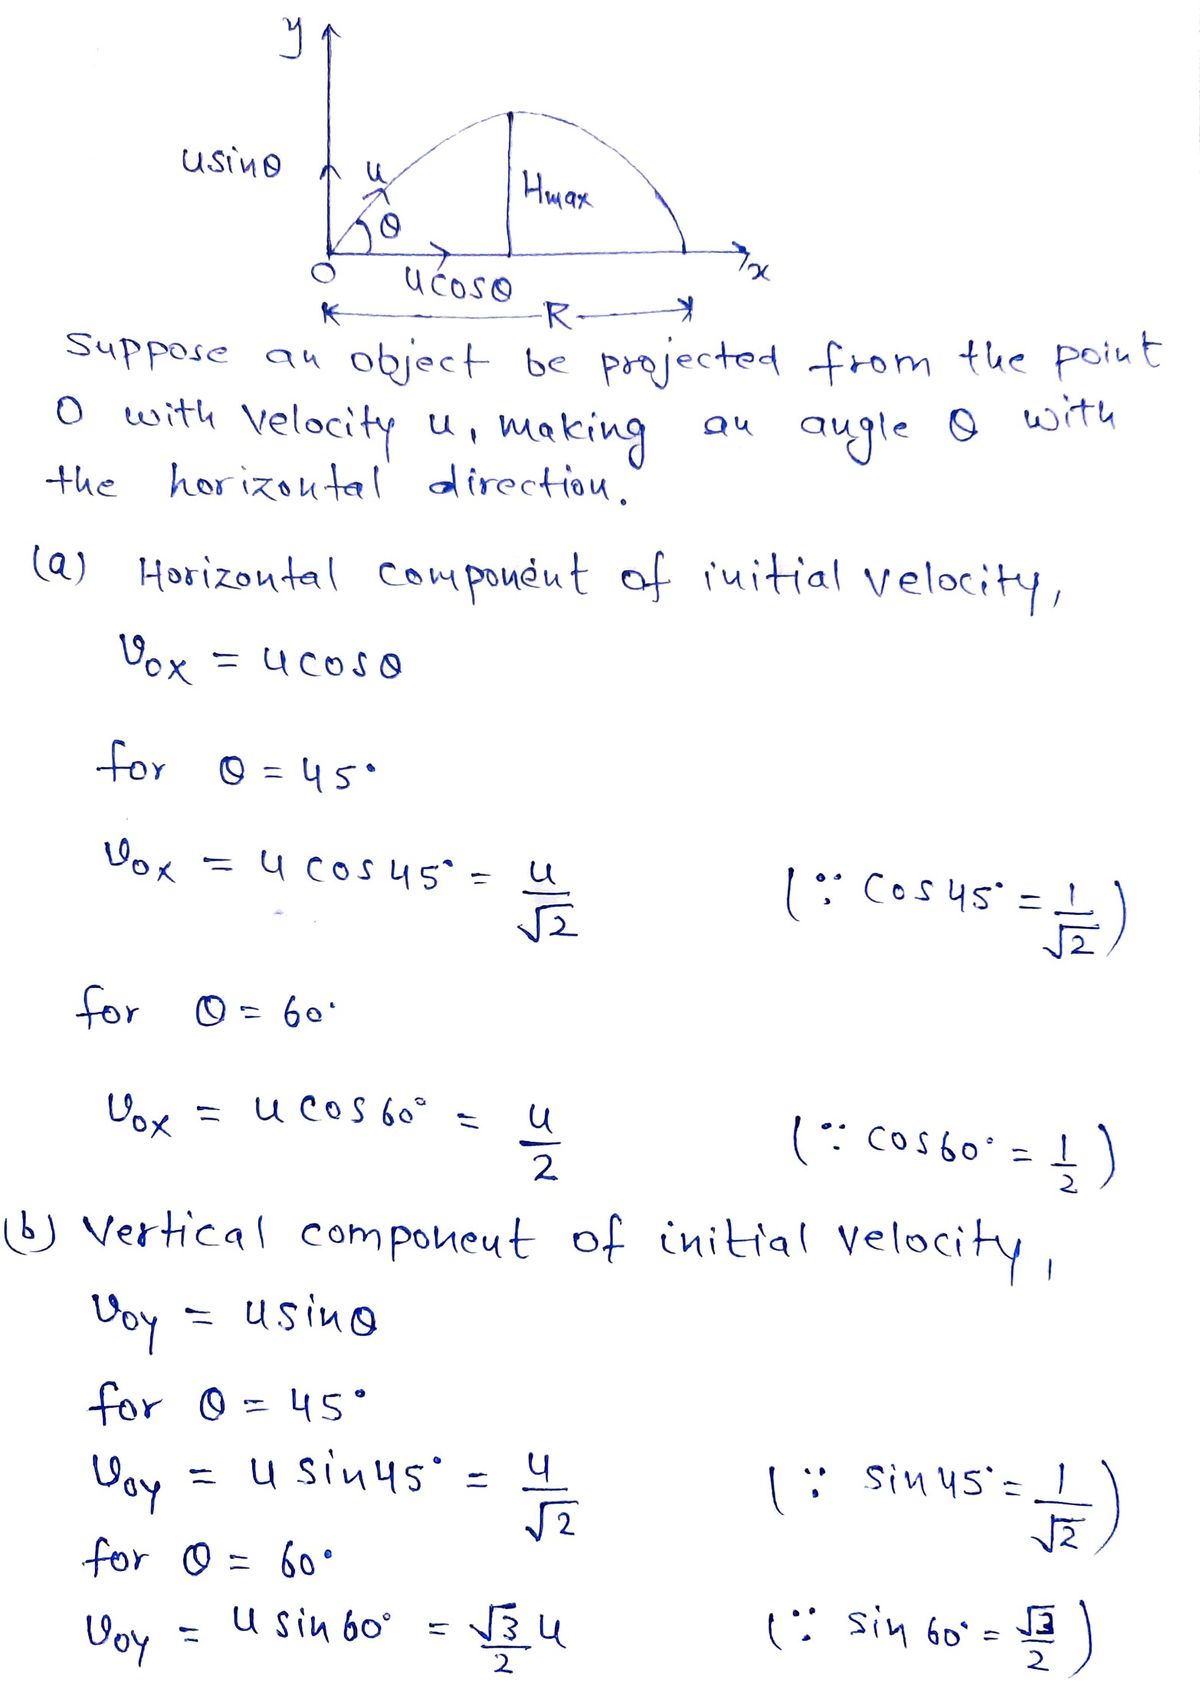 y
usinθ
u
Hmax
θ
O
ucosθ
x
R
Suppose an object be projected from the point
O with velocity u, making an angle θ with
the horizontal direction.
(a) Horizontal component of initial velocity,
v₀ₓ = ucosθ
for θ = 45°
v₀ₓ = u cos 45° = u/√2 (∵ cos 45° = 1/√2)
for θ = 60°
v₀ₓ = u cos 60° = u/2 (∵ cos 60° = 1/2)
(b) Vertical component of initial velocity,
v₀y = usinθ
for θ = 45°
v₀y = u sin 45° = u/√2 (∵ sin 45° = 1/√2)
for θ = 60°
v₀y = u sin 60° = √3/2 u (∵ sin 60° = √3/2)